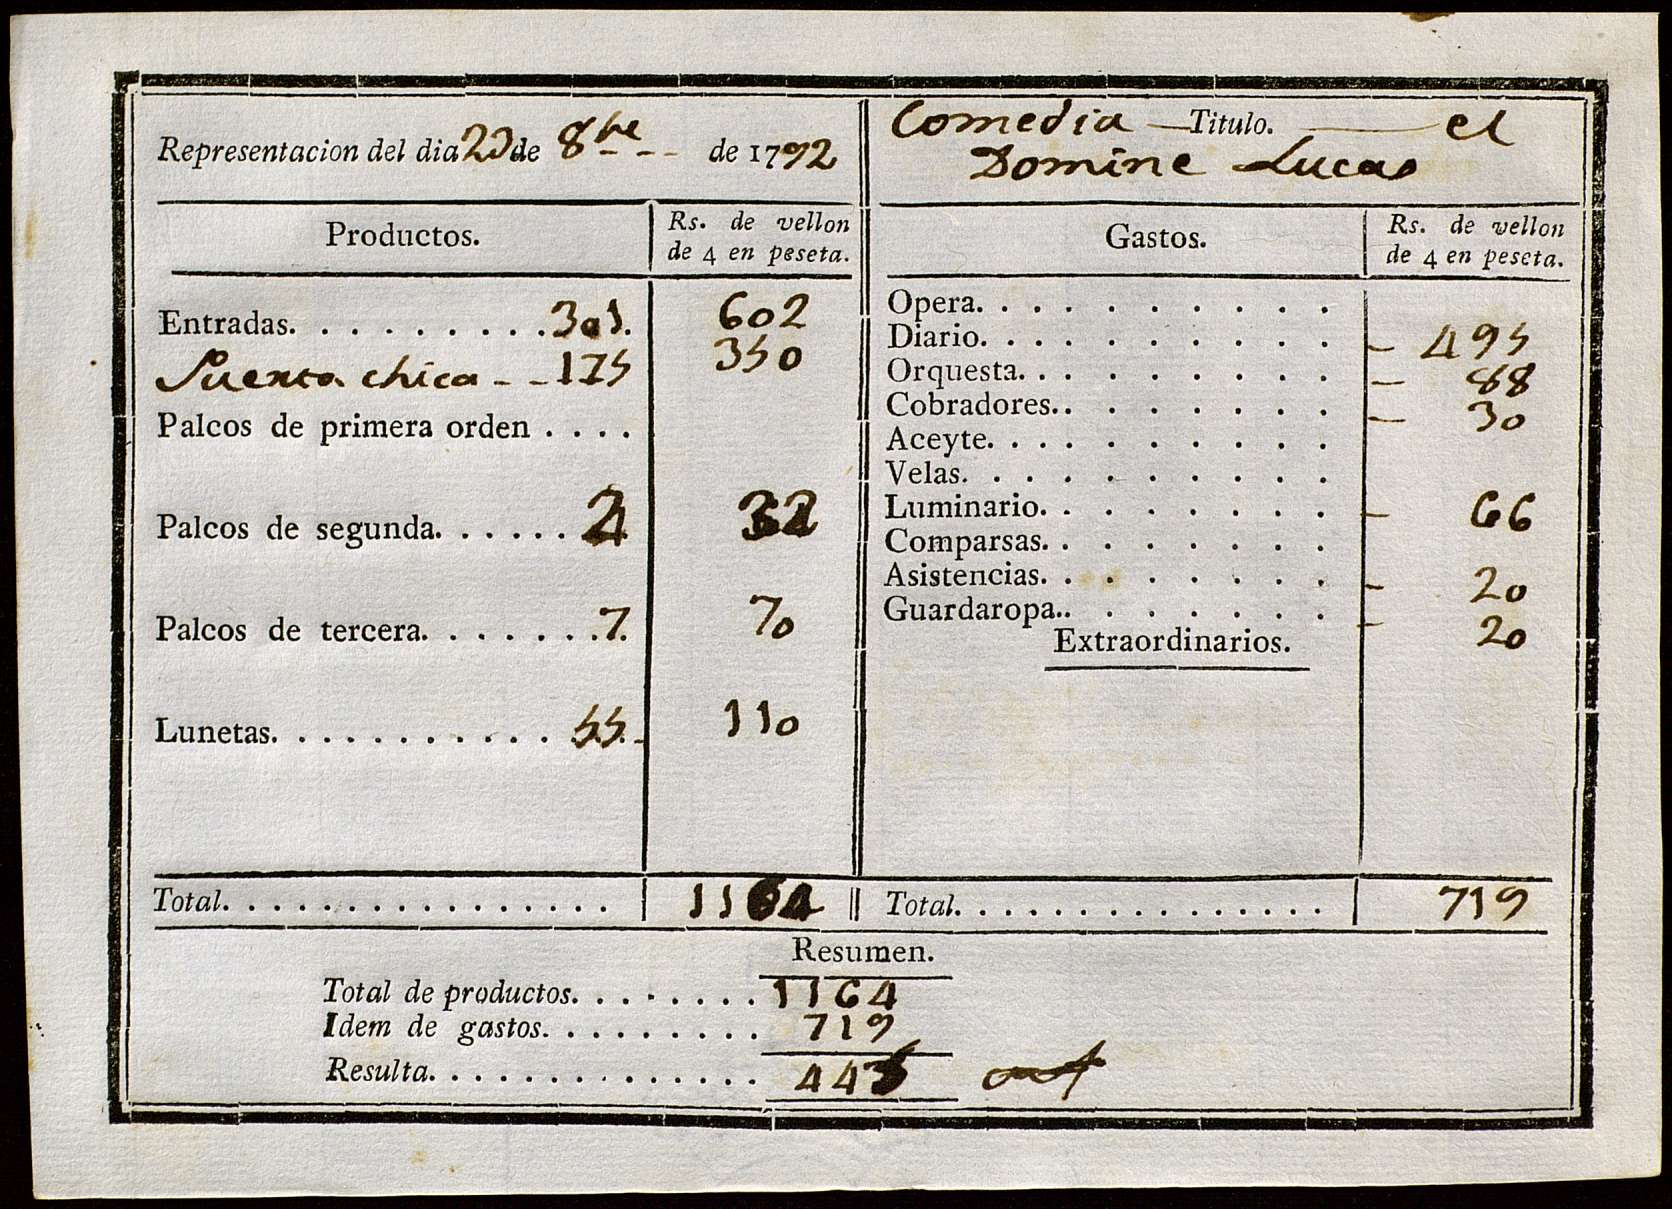 Representacion del dia 23 de 8bre de 1792
Productos.
Rs. de vellon
de 4 en peseta.
Entradas. . . . . . . . . . 301. 602
Puerta chica - - 175 350
Palcos de primera orden . . . .
Palcos de segunda. . . . . . 2 32
Palcos de tercera. . . . . . . 7. 70
Lunetas. . . . . . . . . . . . 55. 110
Total. . . . . . . . . . . . . . . . 1164
Comedia — Titulo. — el
Domine Lucas
Gastos.
Rs. de vellon
de 4 en peseta.
Opera. . . . . . . . . .
Diario. . . . . . . . . . - 495
Orquesta. . . . . . . . . - 88
Cobradores. . . . . . . . - 30
Aceyte. . . . . . . . . .
Velas. . . . . . . . . .
Luminario. . . . . . . . - 66
Comparsas. . . . . . . .
Asistencias. . . . . . . . - 20
Guardaropa. . . . . . . . - 20
Extraordinarios.
Total. . . . . . . . . . . . . . . . 719
Resumen.
Total de productos. . . . . . . . 1164
Idem de gastos. . . . . . . . . 719
Resulta. . . . . . . . . . . . . . 445